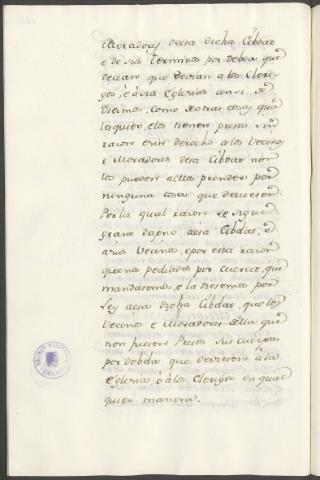 Moradores desta dicha Cibdat
e de sus terminos por debda que
decian que devian a los Cleri-
gos, è a sus Eglesias ansi de
Diezmos, como de otras cosas qua
lesquier, e los tienen presos sin
razon è sin derecho a los Vecinos
e Moradores desta Cibdat non
los pueden a ellos prender por
ninguna cosa que deviesen:
Por la qual razon se sigue
grant dapno a esta Cibdat, è
a sus Vecinos, e por esta razon
que nos pediades por merced, que
mandasemos, e la diesemos por
Ley a esta dicha Cibdat, que los
Vecinos e Moradores della que
non fuesen Presos sus cuerpos
por debda que deviesen à la
Eglesia ò a los Clerigos en qual
quier manera.